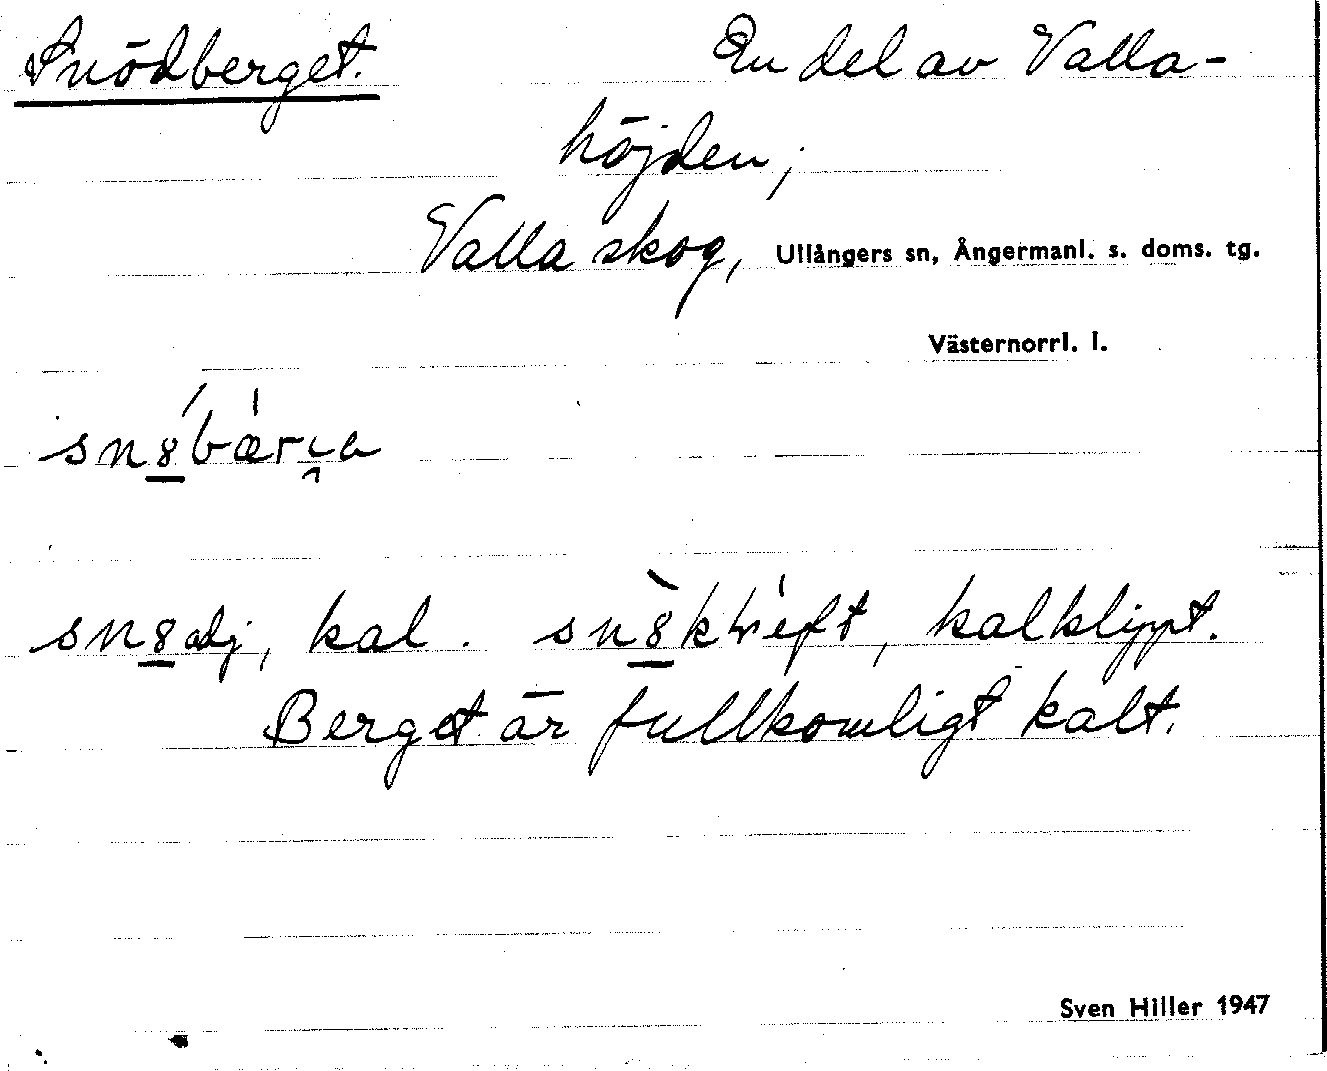 Snödberget. En del av Valla-
höjden;
Valla skog, Ullångers sn, Ångermanl. s. doms. tg.
Västernorrl. l.
sn8bærıa
sn8 adj, kal. sn8 , kalklippt.
Berget är fullkomligt kalt.
Sven Hiller 1947